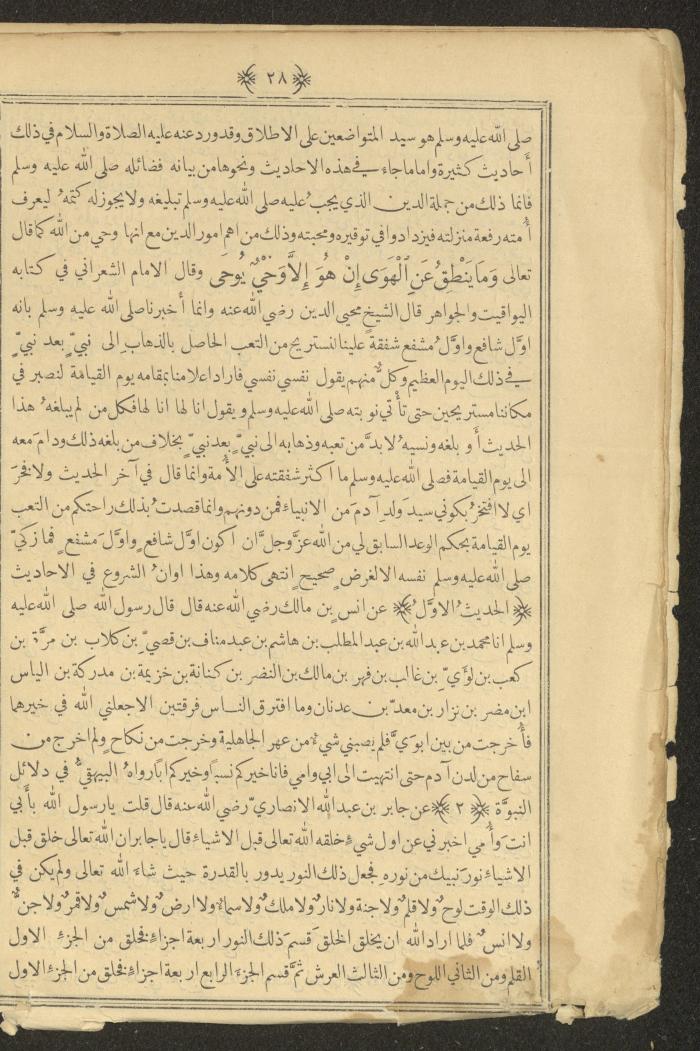 ﴿ ٢٨ ﴾
صلى الله عليه وسلم هو سيد المتواضعين على الاطلاق وقد ورد عنه عليه الصلاة والسلام في ذلك
أحاديث كثيرة واما ما جاء في هذه الاحاديث ونحوها من بيانه فضائله صلى الله عليه وسلم
فانما ذلك من جملة الدين الذي يجب عليه صلى الله عليه وسلم تبليغه ولا يجوز له كتمهُ ليعرف
أمته رفعة منزلته فيزدادوا في توقيره ومحبته وذلك من اهم امور الدين مع انها وحي من الله كما قال
تعالى وَمَا يَنْطِقُ عَنِ ٱلْهَوَى إِنْ هُوَ إِلاَّ وَحْيٌ يُوحَى وقال الامام الشعراني في كتابه
اليواقيت والجواهر قال الشيخ محيي الدين رضي الله عنه وانما أخبرنا صلى الله عليه وسلم بانه
اوَّل شافع واوَّل مُشفع شفقة علينا لنستريح من التعب الحاصل بالذهاب الى نبيٍّ بعد نبيٍّ
في ذلك اليوم العظيم وكلٌّ منهم يقول نفسي نفسي فاراد اعلامنا بمقامه يوم القيامة لنصبر في
مكاننا مستريحين حتى تأتي نوبته صلى الله عليه وسلم ويقول انا لها انا لها فكل من لم يبلغهُ هذا
الحديث أو بلغه ونسيهُ لا بدَّ من تعبه وذهابه الى نبيٍّ بعد نبيٍّ بخلاف من بلغه ذلك ودامَ معه
الى يوم القيامة فصلى الله عليه وسلم ما اكثر شفقته على الأُمة وانما قال في آخر الحديث ولا فخرَ
اي لا افتخرُ بكوني سيدَ ولدِ آدمَ من الانبياءِ فمن دونهم وانما قصدتُ بذلك راحتكم من التعب
يوم القيامة بحكم الوعد السابق لي من الله عزَّ وجلَّ ان اكون اوَّل شافعٍ واوَّلَ مشفعٍ فما زكّى
صلى الله عليه وسلم نفسه الا لغرضٍ صحيحٍ انتهى كلامه وهذا اوانُ الشروع في الاحاديث
﴿ الحديثُ الاوَّلُ ﴾ عن انس بن مالك رضي الله عنه قال قال رسول الله صلى الله عليه
وسلم انا محمد بن عبد الله بن عبد المطلب بن هاشم بن عبد مناف بن قصيّ بن كلاب بن مرَّة بن
كعب بن لؤَيّ بن غالب بن فهر بن مالك بن النضر بن كنانة بن خزيمة بن مدركة بن الياس
ابن مضر بن نزار بن معدّ بن عدنان وما افترق الناس فرقتين الا جعلني الله في خيرهما
فأُخرجت من بين ابويَّ فلم يصبني شيءٌ من عهر الجاهلية وخرجت من نكاحٍ ولم اخرج من
سفاح من لدن آدم حتى انتهيت الى ابي وامي فانا خيركم نسباً وخيركم اباً رواهُ البيهقيُّ في دلائل
النبوَّة ﴿ ٢ ﴾ عن جابر بن عبد الله الانصاريّ رضي الله عنه قال قلت يا رسول الله بأبي
انت وأُمي اخبرني عن اول شيءٍ خلقه الله تعالى قبل الاشياءِ قال يا جابر ان الله تعالى خلق قبل
الاشياءِ نورَ نبيك من نوره فجعل ذلك النور يدور بالقدرة حيث شاءَ الله تعالى ولم يكن في
ذلك الوقت لوحٌ ولا قلمٌ ولا جنة ولا نارٌ ولا ملكٌ ولا سماءٌ ولا ارضٌ ولا شمسٌ ولا قمرٌ ولا جنٌّ
ولا انسٌ فلما اراد الله ان يخلق الخلقَ قسم ذلك النور اربعة اجزاءٍ فخلق من الجزءِ الاول
القلم ومن الثاني اللوح ومن الثالث العرش ثمَّ قسم الجزءَ الرابع اربعة اجزاءٍ فخلق من الجزءِ الاول